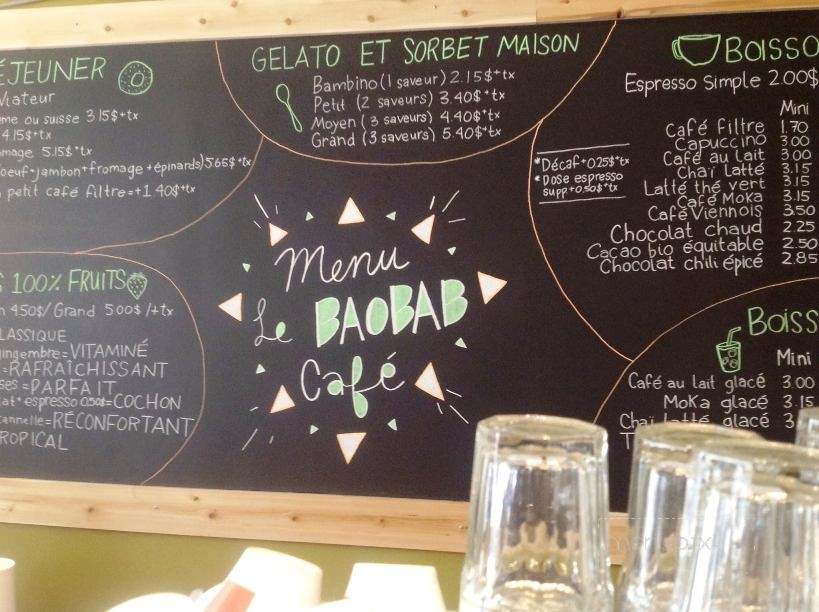 ÉJEUNER
Viateur
me ou suisse 3.15$+tx
4.15$+tx
mage 5.15$+tx
oeuf+jambon+fromage+épinards) 5.65$+tx
petit café filtre=+1.40$+tx
GELATO ET SORBET MAISON
Bambino (1 saveur) 2.15$+tx
Petit (2 saveurs) 3.40$+tx
Moyen (3 saveurs) 4.40$+tx
Grand (3 saveurs) 5.40$+tx
BOISSO
Espresso Simple 2.00$
Mini
Café filtre 1.70
Capuccino 3.00
Café au lait 3.00
Chaï Latté 3.15
Latté thé vert 3.15
Café Moka 3.15
Café Viennois 3.50
Chocolat chaud 2.25
Cacao bio équitable 2.50
Chocolat chili épicé 2.85
*Décaf+0.25$+tx
*Dose espresso
supp+0.50$+tx
Menu
Le BAOBAB
Café
S 100% FRUITS
n 4.50$/ Grand 5.00$ /+tx
LASSIQUE
gingembre=VITAMINÉ
=RAFRAÎCHISSANT
ses=PARFAIT
at+espresso 0.50$=COCHON
cannelle=RÉCONFORTANT
ROPICAL
BOISS
Mini
Café au lait glacé 3.00
Moka glacé 3.15
Chaï Latté glacé 3